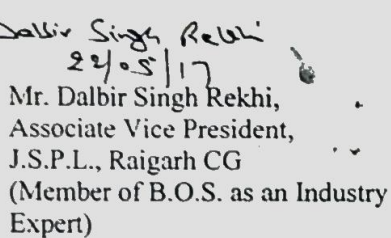 Dalbir Singh Rekhi
22/05/17
Mr. Dalbir Singh Rekhi,
Associate Vice President,
J.S.P.L., Raigarh CG
(Member of B.O.S. as an Industry
Expert)